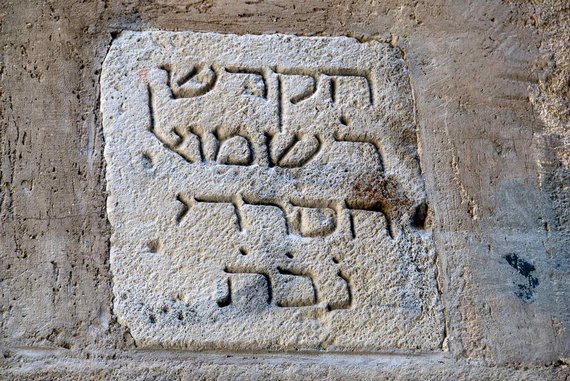 הקדש
ר׳ שמואל
הסרדי
נ׳ב׳ת׳